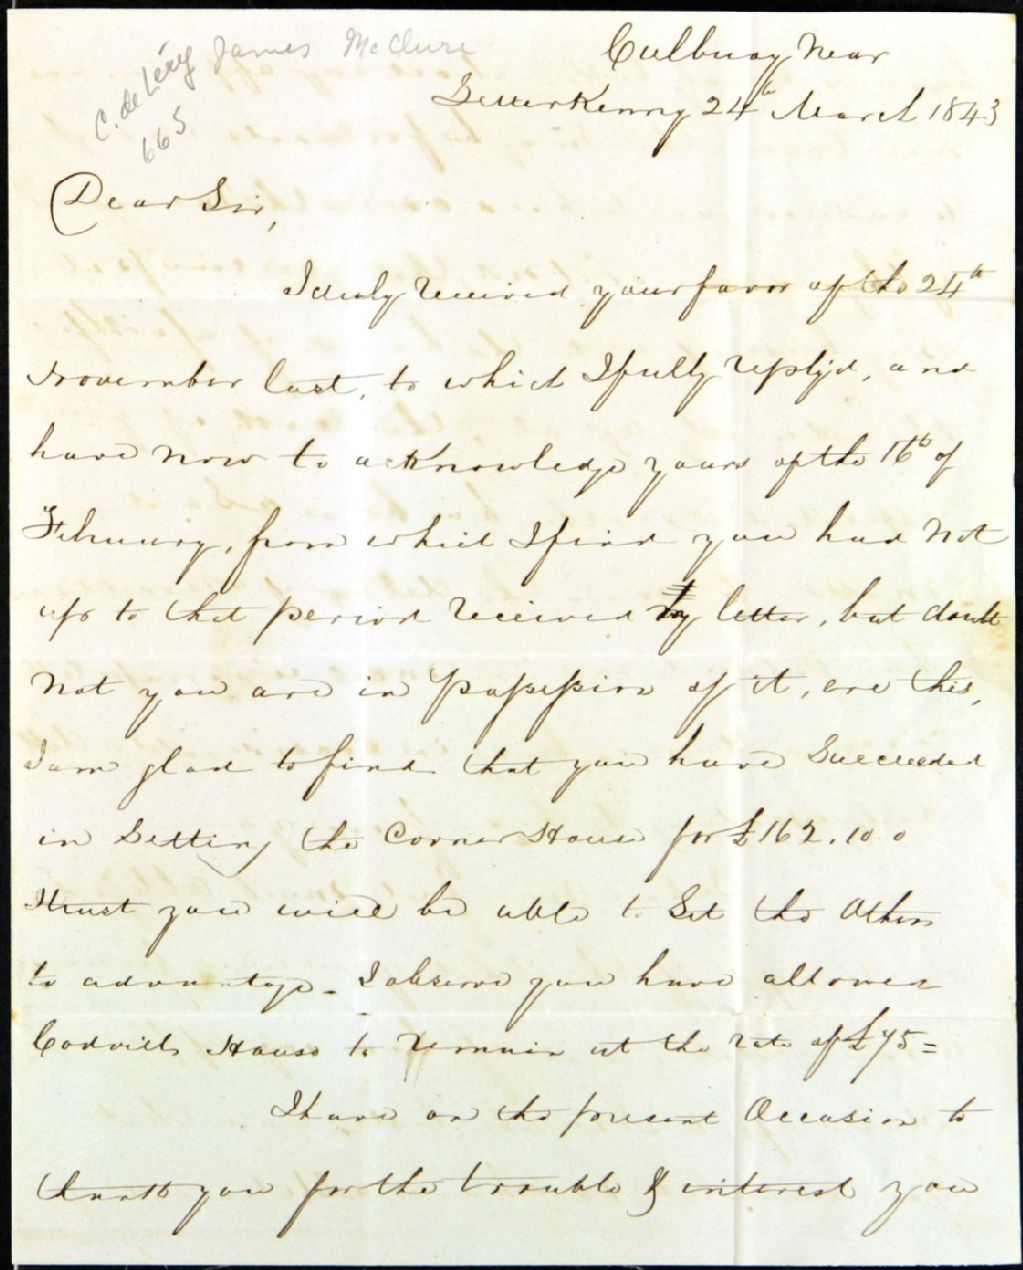 C. de Léry James McClure
665
Culbuoy Near
Letterkenny 24th March 1843
Dear Sir,
I duly received your favor of the 24th
November last, to which I fully replyd, and
have now to acknowledge yours of the 16th of
February, from which I find you had not
up to that period received my letter, but doubt
not you are in possession of it, ere this,
I am glad to find that you have Succeeded
in Setting the Corner House for £162.10.0
I trust you will be able to Set the Others
to advantage. I observe you have allowed
House to remain at the rate of £75=
I have on the present Occasion to
thank you for the trouble & interest you